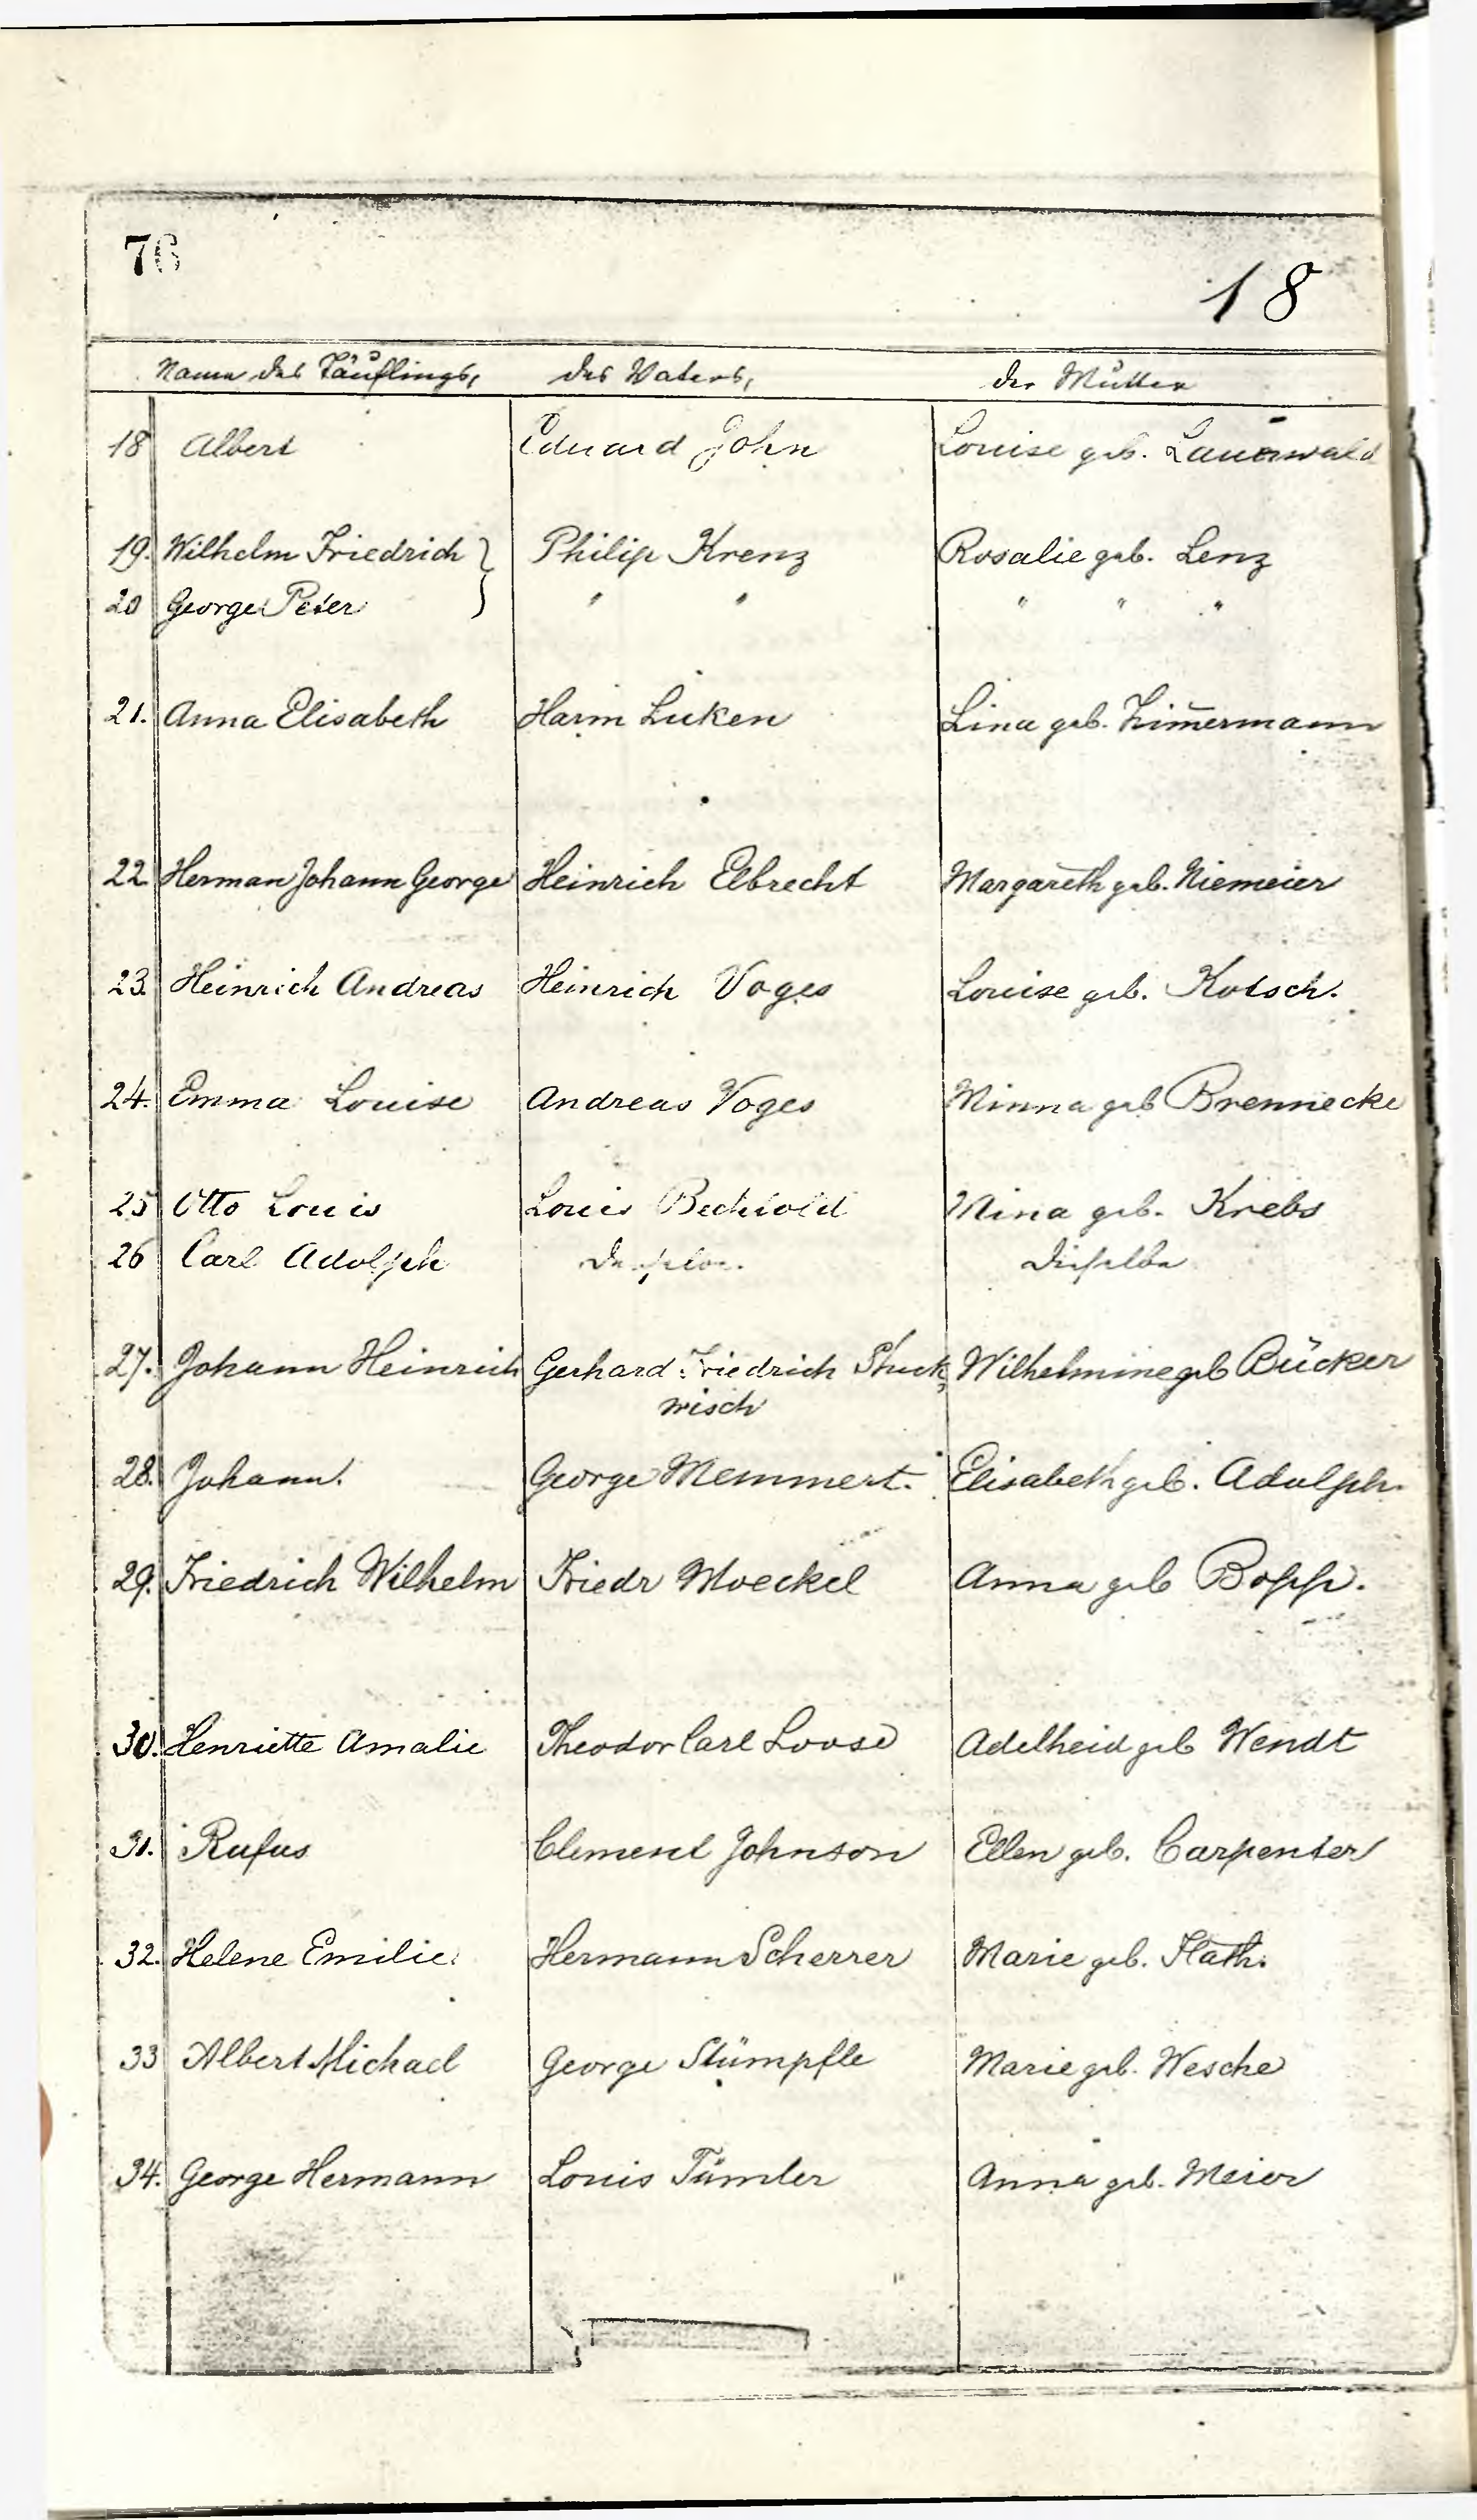 76
18
Name des Täuflings, des Vaters, der Mutter
18 Albert Eduard John Louise geb. Lauerwald
19. Wilhelm Friedrich } Philip Krenz Rosalie geb. Lenz
20 George Peter " " " " "
21. Anna Elisabeth Harm Lüken Lina geb. Zim̄ermann
22 Herman Johann George Heinrich Elbrecht Margareth geb. Niemeier
23. Heinrich Andreas Heinrich Voges Louise geb. Kotsch.
24. Emma Louise Andreas Voges Minna geb Brennecke
25 Otto Louis Louis Bechtold Mina geb. Krebs
26 Carl Adolph Derselbe. Dieselbe
27. Johann Heinrich Gerhard Friedrich Stuck, Wilhelmine geb Bücker
wisch
28. Johann. George Memmert. Elisabeth geb. Adolph.
29. Friedrich Wilhelm Friedr Moeckel Anna geb Bopp.
30. Henriette Amalie Theodor Carl Loose Adelheid geb Wendt
31. Rufus Clement Johnson Ellen geb. Carpenter
32. Helene Emilie. Hermann Scherrer Marie geb. Flath.
33 Albert Michael George Stümpfle Marie geb. Wesche
34. George Hermann Louis Tümler Anna geb. Meier